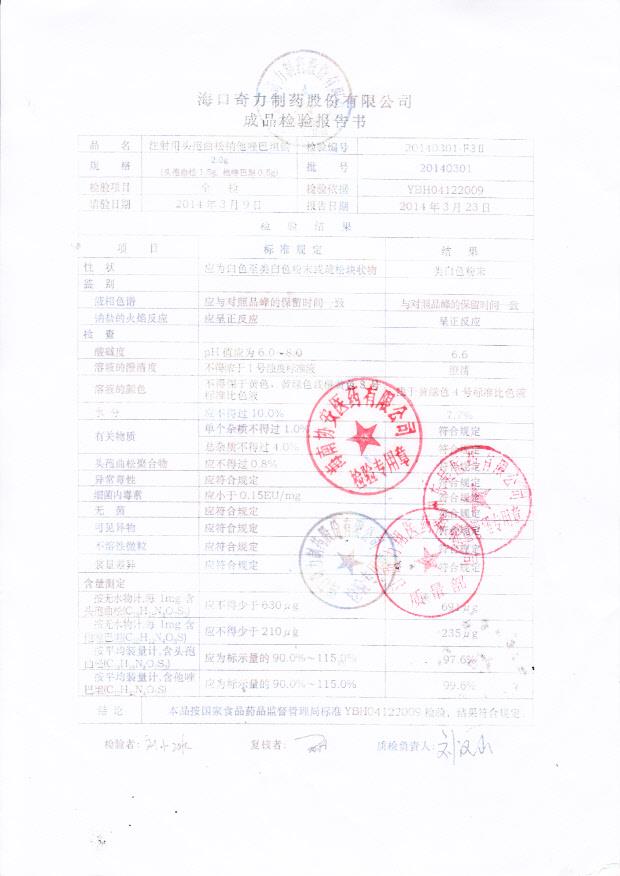 海口奇力制药股份有限公司
成品检验报告书
品 名 注射用头孢曲松钠他唑巴坦钠 检验编号 20140301-F3Ⅱ
规 格 2.0g (头孢曲松1.5g, 他唑巴坦0.5g) 批 号 20140301
检验项目 全 检 检验依据 YBH04122009
请验日期 2014年3月9日 报告日期 2014年3月23日
检 验 结 果
项 目 标准规定 结 果
性 状 应为白色至类白色粉末或疏松块状物 类白色粉末
鉴 别
液相色谱 应与对照品峰的保留时间一致 与对照品峰的保留时间一致
钠盐的火焰反应 应呈正反应 呈正反应
检 查
酸碱度 pH值应为6.0~8.0 6.6
溶液的澄清度 不得浓于1号浊度标准液 澄清
溶液的颜色 不得深于黄色、黄绿色或橙黄色8号 标准比色液 浅于黄绿色4号标准比色液
水 分 应不得过10.0% 7.7%
有关物质 单个杂质不得过1.0% 符合规定
总杂质不得过4.0% 符合规定
头孢曲松聚合物 应不得过0.8% 符合规定
异常毒性 应符合规定 符合规定
细菌内毒素 应小于0.15EU/mg 符合规定
无 菌 应符合规定
可见异物 应符合规定
不溶性微粒 应符合规定
装量差异 应符合规定
含量测定
按无水物计,每1mg含
头孢曲松 应不得少于630μg
按无水物计,每1mg
含他唑巴坦 应不得少于210μg 235μg
按平均装量计,含头孢
曲松 应为标示量的90.0%~115.0% 97.6%
按平均装量计,含他唑
巴坦 应为标示量的90.0%~115.0% 99.6%
结 论 本品按国家食品药品监督管理局标准YBH04122009检验，结果符合规定
检验者: 复核者: 质检负责人: 刘汉山
海南协安医药有限公司
检验专用章
质量部